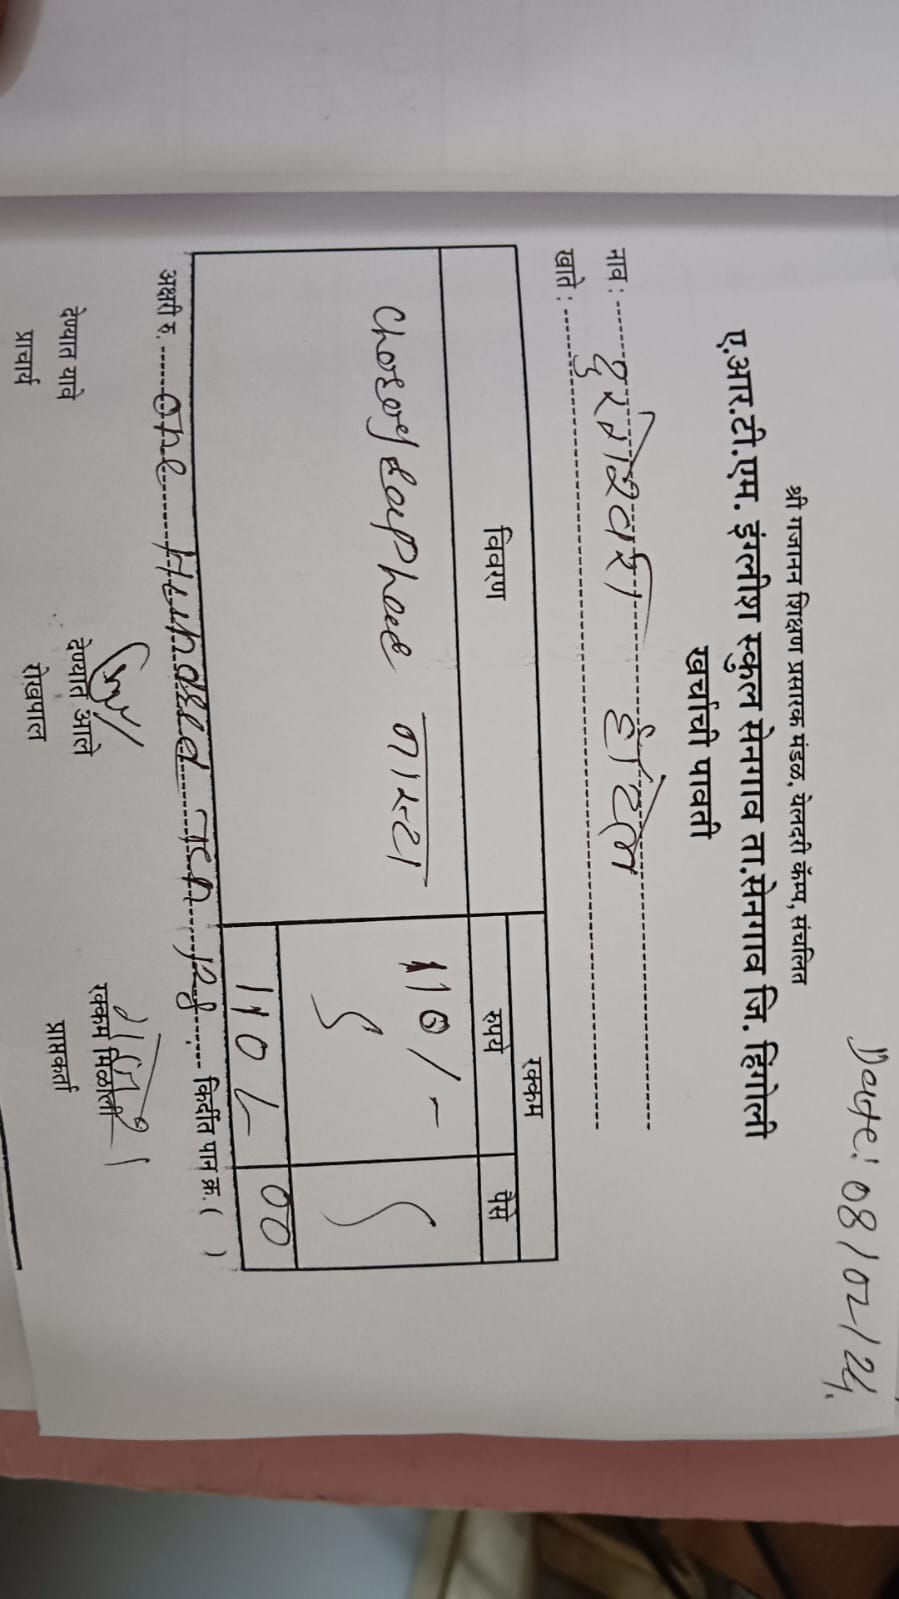 Date: 08/02/24.
श्री गजानन शिक्षण प्रसारक मंडळ, येलदरी कॅम्प, संचलित
ए.आर.टी.एम. इंग्लीश स्कुल सेनगाव ता.सेनगाव जि. हिंगोली
खर्चाची पावती
नाव : हॉटेल
खाते :
विवरण रक्कम
रुपये पैसे
नाश्ता 110/-
110/- 00
अक्षरी रु. One Hundred Ten किर्दीत पान क्र. ( )
देण्यात यावे देण्यात आले रक्कम मिळाली
प्राचार्य रोखपाल प्राप्तकर्ता